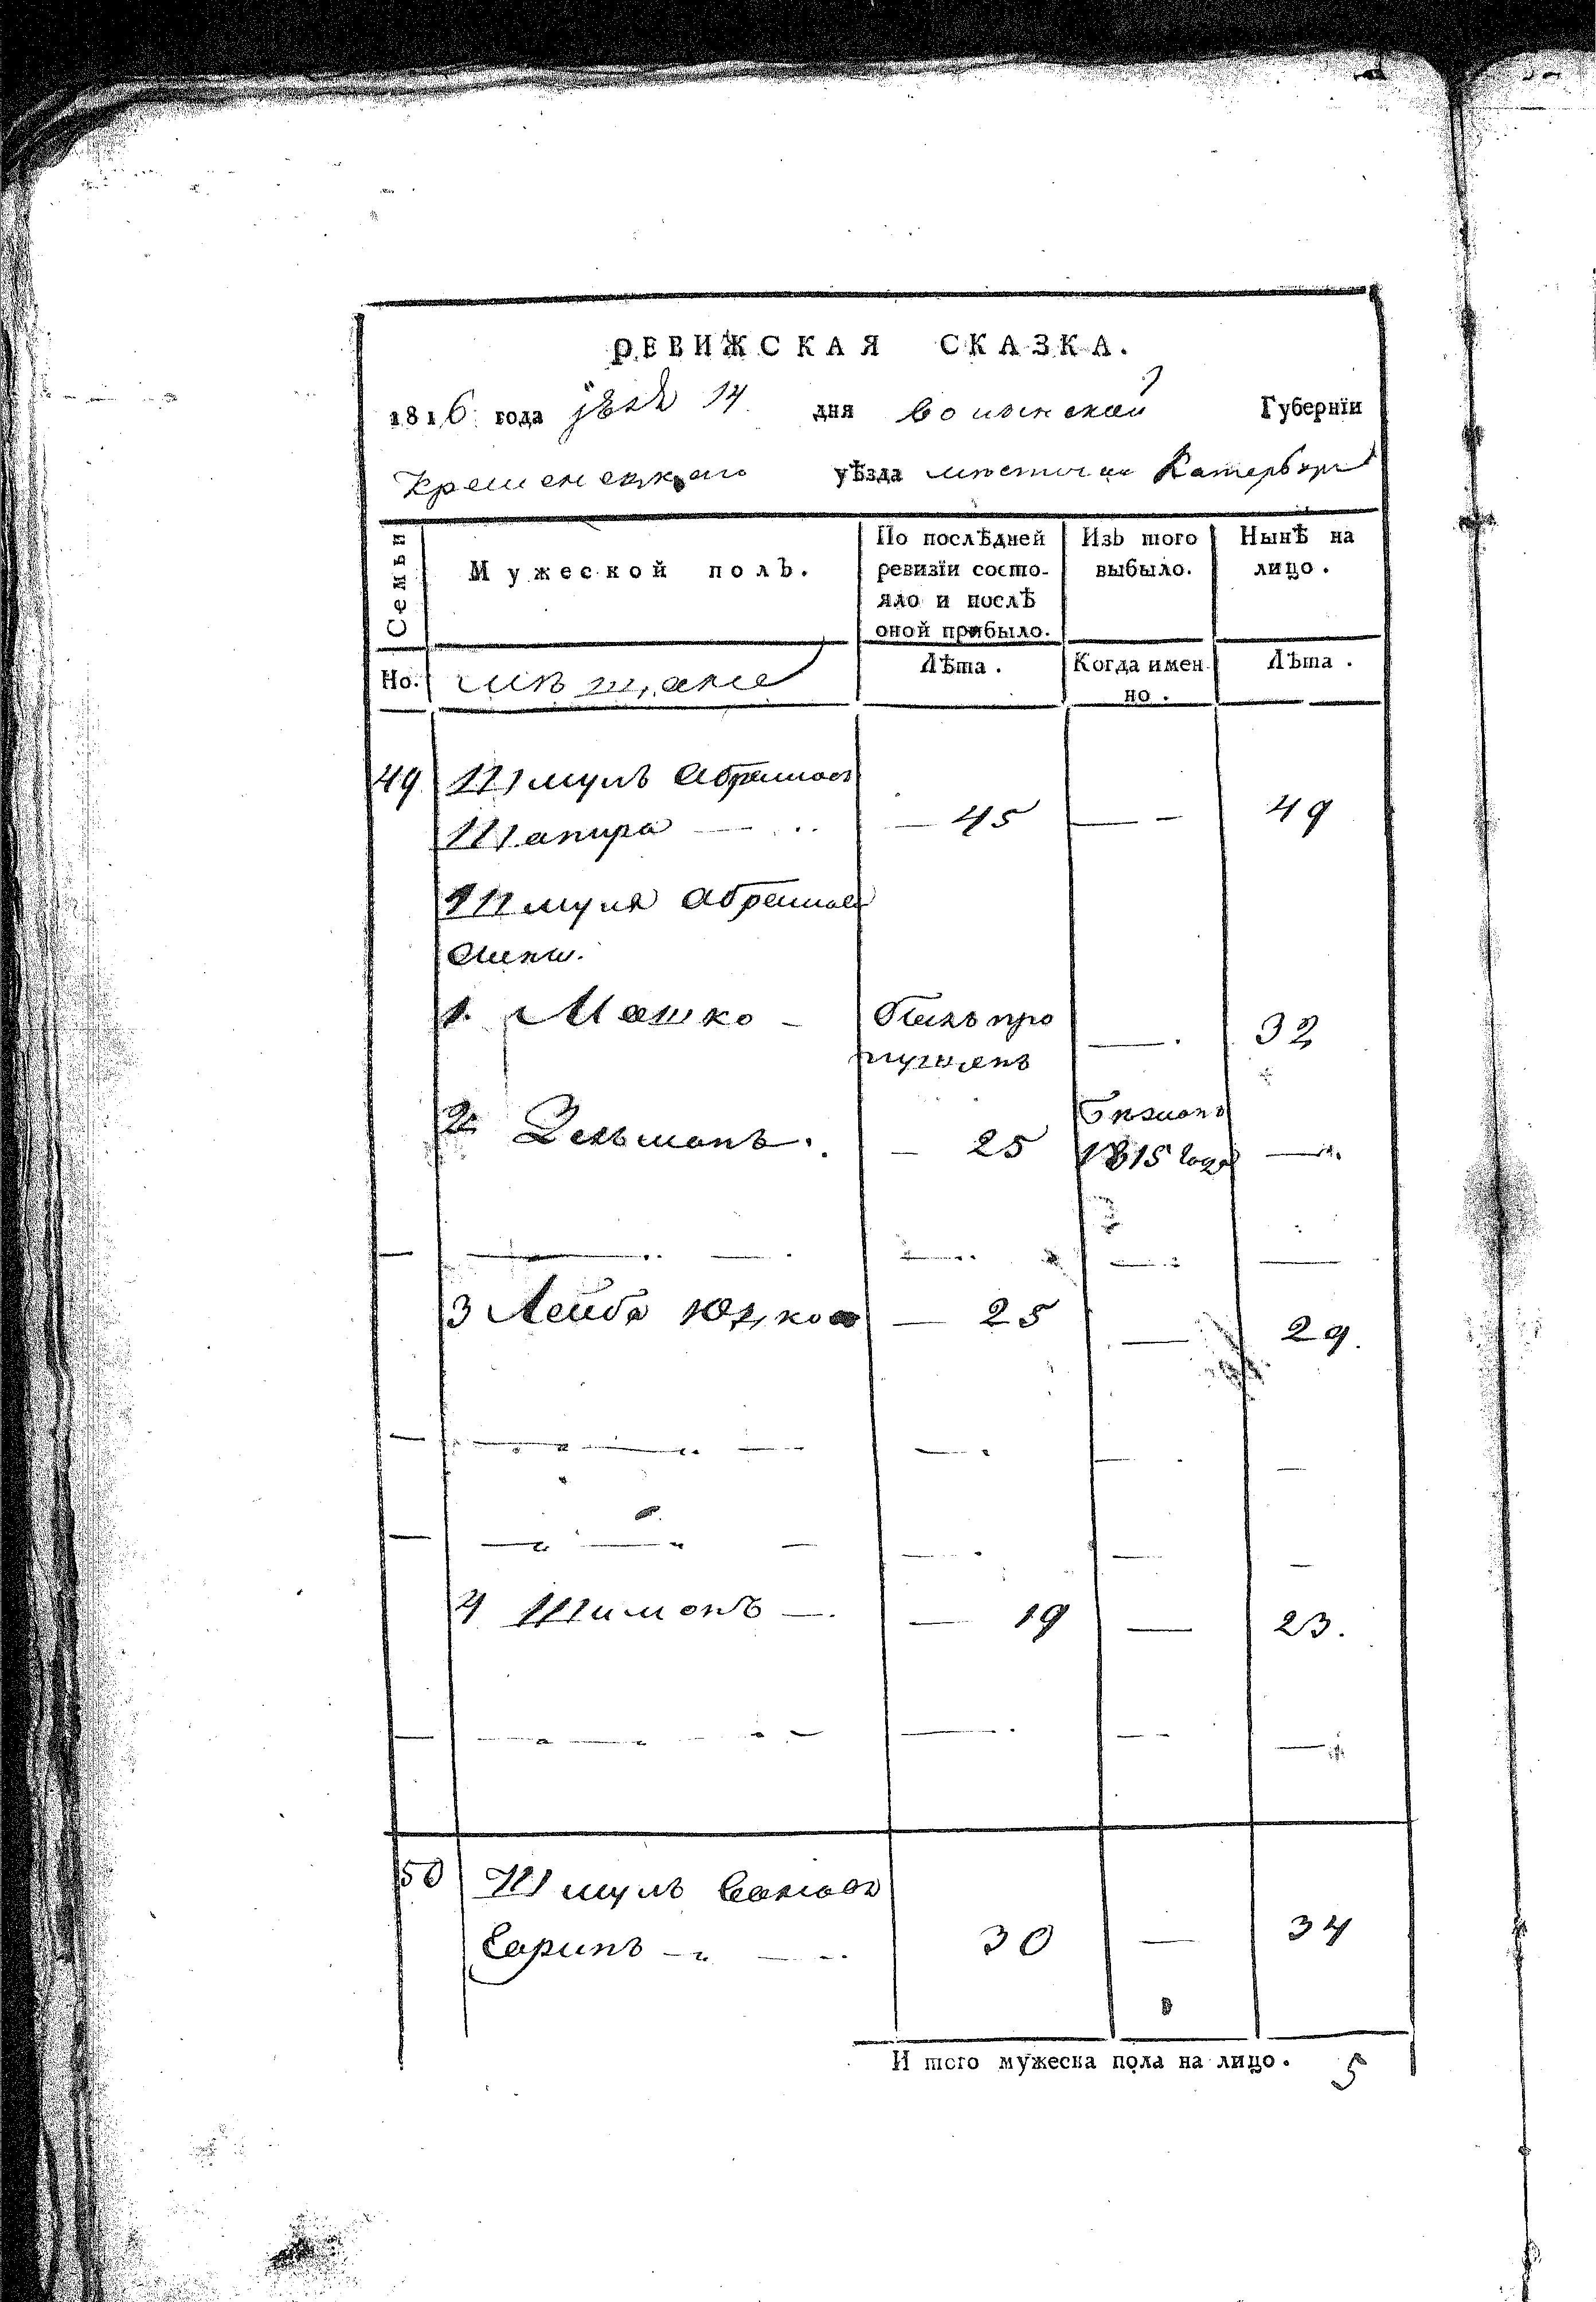 РЕВИЖСКАЯ СКАЗКА.
1816 года 14 дня Волынской Губернїи
Кременецкаго уѣзда местечка Катербурга
Семьи
Мужеской полъ.
По послѣдней
ревизїи состо-
яло и послѣ
оной прибыло.
Изъ того
выбыло.
Нынѣ на
лицо.
Но. мещане
Лѣта.
Когда имен-
но.
Лѣта.
49 Шмуль Абрамовъ
Шапира — 45 — 49
Шмуля Абрамова
сыны.
1. Мошко — былъ про
пущенъ — 32
2 Зельманъ. — 25 Бежалъ
1815 года —
3 Лейба Юдков — 25 — 29.
4 Шимонъ — 19 — 23.
50 Шмуль
30 — 34
И того мужеска пола на лицо. 5